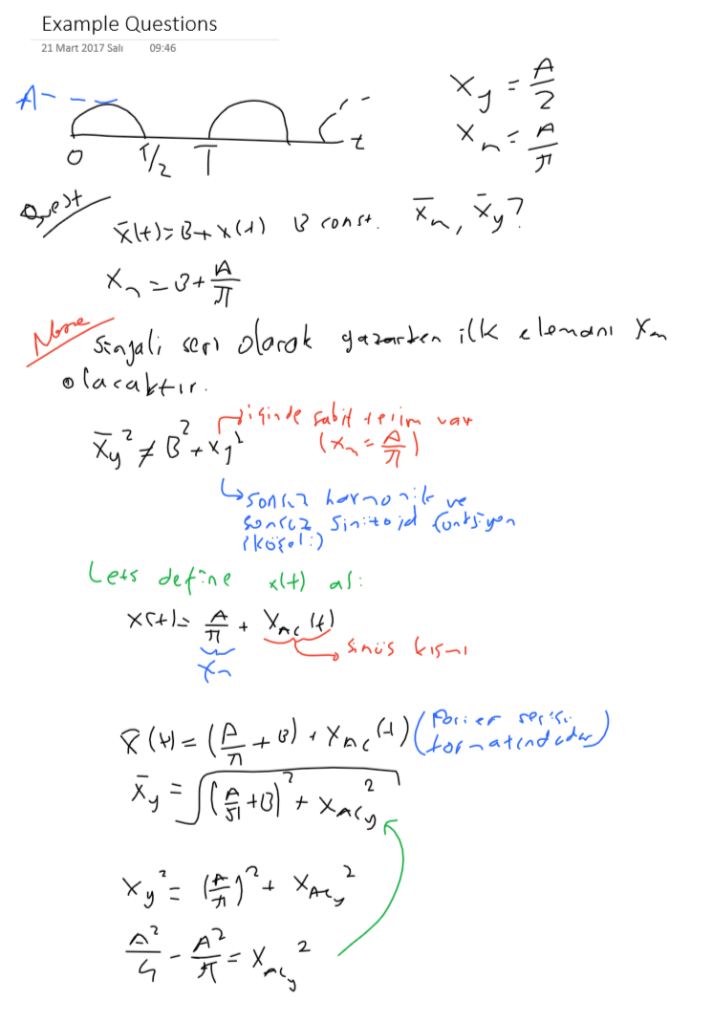 Example Questions
21 Mart 2017 Salı 09:46
A
0 T/2 T t
X_y = A/2
X_n = A/π
Quest
x̄(t) = B + x(t) B const. x̄_n, x̄_y?
X_n = B + A/π
None
Sinyali seri olarak yazarken ilk elemanı X_n
olacaktır.
x̄_y² ≠ B² + x_y²
içinde sabit terim var
(x_n = A/π)
sonsuz harmonik ve
sonsuz sinitoid fonksiyon
(köşeli:)
Lets define x(t) as:
x(t) = A/π + X_AC(t)
X_n
sinüs kısmı
x̄(t) = (A/π + B) + X_AC(t) (Forier serisi
formatındadır)
x̄_y = √((A/π + B)² + X_ACy²)
X_y² = (A/π)² + X_ACy²
A²/4 - A²/π = X_ACy²